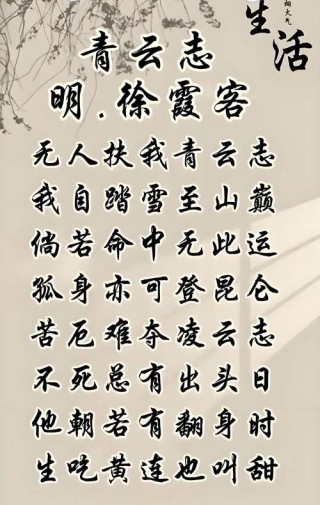 生活
青云志
明.徐霞客
无人扶我青云志
我自踏雪至山巅
倘若命中无此运
孤身亦可登昆仑
苦厄难夺凌云志
不死总有出头日
他朝若有翻身时
生吃黄连也叫甜